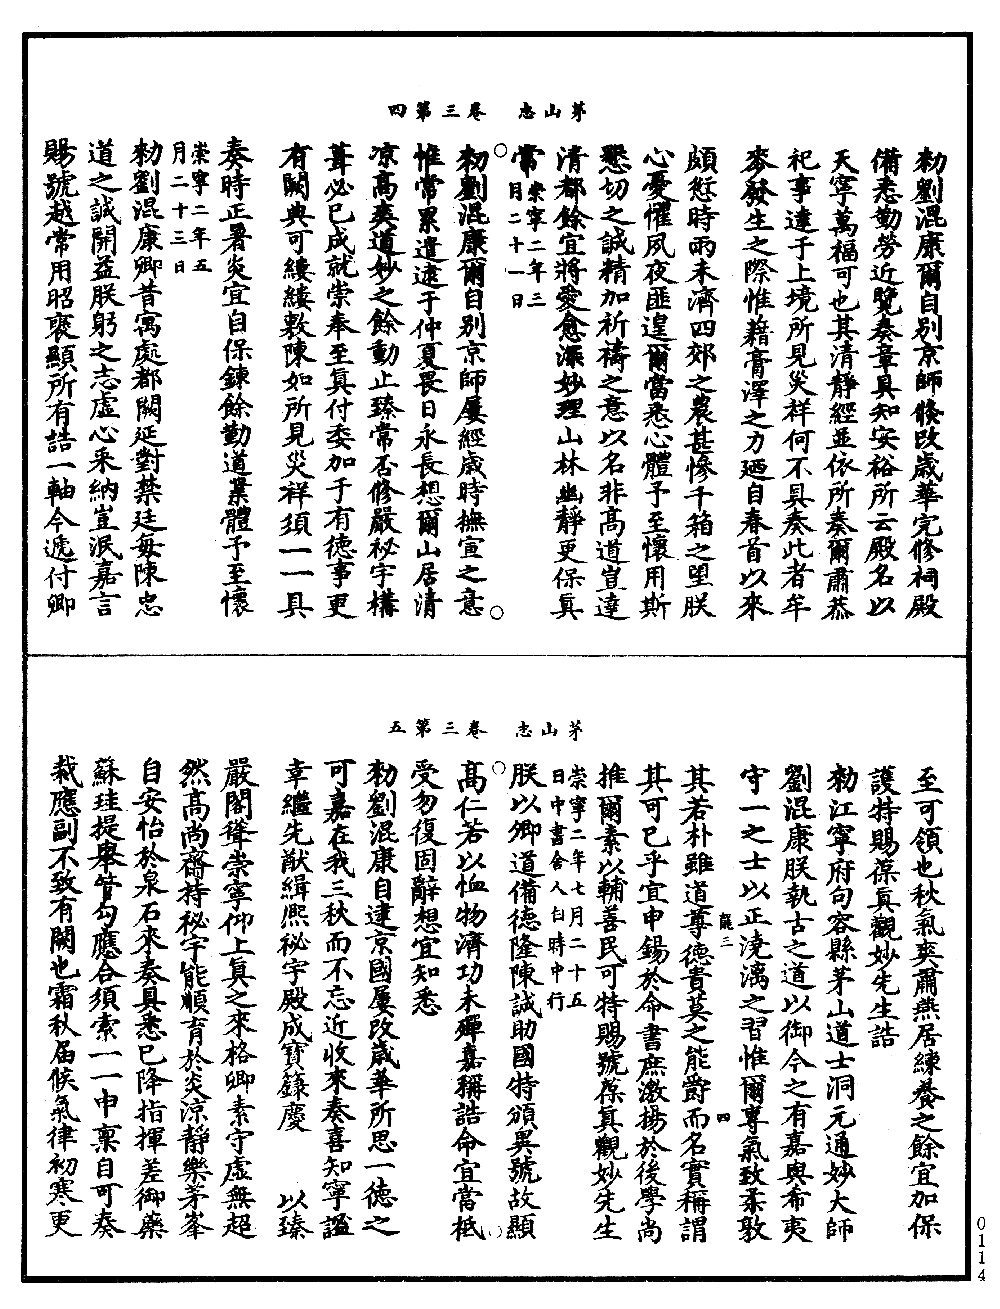 茅山志　卷三第四
勑劉混康爾自别京師倐改歲華完修祠殿
備悉勤勞近覽奏章具知安裕所云殿名以
天寧萬福可也其清靜經並依所奏爾肅恭
祀事達于上境所見災祥何不具奏此者牟
麥發生之際惟藉膏澤之力廼自春首以來
頗愆時雨未濟四郊之農甚慘千箱之望朕
心憂懼夙夜匪遑爾當悉心體予至懷用斯
懇切之誠精加祈禱之意以名非高道豈達
清都餘宜將愛愈深妙理山林幽靜更保真
常崇寧二年三
月二十一日
勑劉混康爾自别京師屢經歲時撫宣之意
惟常累遣逮于仲夏畏日永長想爾山居清
凉高爽道妙之餘動止臻常否修嚴祕宇構
葺必已成就崇奉至真付委加于有德事更
有闕典可縷縷敷陳如所見災祥須一一具
奏時正署炎宜自保鍊餘勤道業體予至懷
崇寧二年五
月二十三日
勑劉混康卿昔寓處都闕延對禁廷每陳忠
道之誠開益朕躬之志虛心采納豈泯嘉言
賜號越常用昭褒顯所有誥一軸今遞付卿
茅山志　卷三第五
至可領也秋氣爽肅燕居練養之餘宜加保
護持賜葆真觀妙先生誥
勑江寧府句容縣茅山道士洞元通妙大師
劉混康朕執古之道以御今之有嘉與希夷
守一之士以正澆漓之習惟爾專氣致柔敦
龍三　四
其若朴雖道尊德貴莫之能爵而名實稱謂
其可已乎宜申錫於命書庶激揚於後學尚
推爾素以輔善民可特賜號葆真觀妙先生
崇寧二年七月二十五
日中書舍人白時中行
朕以卿道備德隆陳誠助國特頒異號故顯
高仁若以恤物濟功未殫嘉稱誥命宜當祗
受勿復固辭想宜知悉
勑劉混康自達京國屢改歲華所思一德之
可嘉在我三秋而不忘近收來奏喜知寧謐
幸繼先猷緝熙祕宇殿成寶籙慶　以臻
嚴閣聳崇寧仰上真之來格卿素守虛無超
然高尚齋持祕宇能順育於炎涼靜樂茅峯
自安怡於泉石來奏具悉已降指揮差御藥
蘇珪提舉管勾應合須索一一申稟自可奏
裁應副不致有闕也霜秋届候氣律初寒更
0114